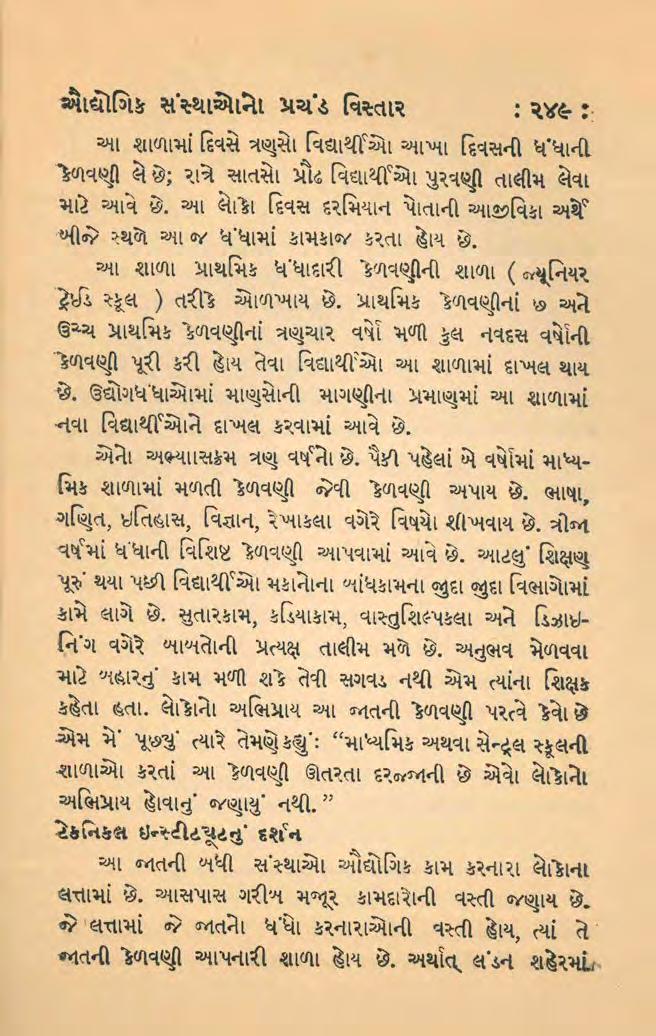 ઔદ્યોગિક સંસ્થાઓનો પ્રચંડ વિસ્તાર : ૨૪૯ :
આ શાળામાં દિવસે ત્રણસો વિદ્યાર્થીઓ આખા દિવસની ધંધાની
કેળવણી લે છે; રાત્રે સાતસો પ્રૌઢ વિદ્યાર્થીઓ પુરવણી તાલીમ લેવા
માટે આવે છે. આ લોકો દિવસ દરમિયાન પોતાની આજીવિકા અર્થે
બીજે સ્થળે આ જ ધંધામાં કામકાજ કરતા હોય છે.
આ શાળા પ્રાથમિક ધંધાદારી કેળવણીની શાળા ( જ્યૂનિયર
ટ્રેઈડ સ્કૂલ ) તરીકે ઓળખાય છે. પ્રાથમિક કેળવણીનાં છ અને
ઉચ્ચ પ્રાથમિક કેળવણીનાં ત્રણચાર વર્ષો મળી કુલ નવદસ વર્ષોની
કેળવણી પૂરી કરી હોય તેવા વિદ્યાર્થીઓ આ શાળામાં દાખલ થાય
છે. ઉદ્યોગધંધાઓમાં માણસોની માગણીના પ્રમાણમાં આ શાળામાં
નવા વિદ્યાર્થીઓને દાખલ કરવામાં આવે છે.
એનો અભ્યાસક્રમ ત્રણ વર્ષનો છે. પૈકી પહેલાં બે વર્ષોમાં માધ્ય-
મિક શાળામાં મળતી કેળવણી જેવી કેળવણી અપાય છે. ભાષા,
ગણિત, ઇતિહાસ, વિજ્ઞાન, રેખાકલા વગેરે વિષયો શીખવાય છે. ત્રીજા
વર્ષમાં ધંધાની વિશિષ્ટ કેળવણી આપવામાં આવે છે. આટલું શિક્ષણ
પૂરું થયા પછી વિદ્યાર્થીઓ મકાનોના બાંધકામના જુદા જુદા વિભાગોમાં
કામે લાગે છે. સુતારકામ, કડિયાકામ, વાસ્તુશિલ્પકલા અને ડિઝાઇ-
નિંગ વગેરે બાબતોની પ્રત્યક્ષ તાલીમ મળે છે. અનુભવ મેળવવા
માટે બહારનું કામ મળી શકે તેવી સગવડ નથી એમ ત્યાંના શિક્ષક
કહેતા હતા. લોકોનો અભિપ્રાય આ જાતની કેળવણી પરત્વે કેવો છે
એમ મેં પૂછ્યું ત્યારે તેમણે કહ્યું: “માધ્યમિક અથવા સેન્ટ્રલ સ્કૂલની
શાળાઓ કરતાં આ કેળવણી ઊતરતા દરજ્જાની છે એવો લોકોનો
અભિપ્રાય હોવાનું જણાયું નથી.”
ટેકનિકલ ઇન્સ્ટીટયૂટનું દર્શન
આ જાતની બધી સંસ્થાઓ ઔદ્યોગિક કામ કરનારા લોકોના
લત્તામાં છે. આસપાસ ગરીબ મજૂર કામદારોની વસ્તી જણાય છે.
જે લત્તામાં જે જાતનો ધંધો કરનારાઓની વસ્તી હોય, ત્યાં તે
જાતની કેળવણી આપનારી શાળા હોય છે. અર્થાત્ લંડન શહેરમાં